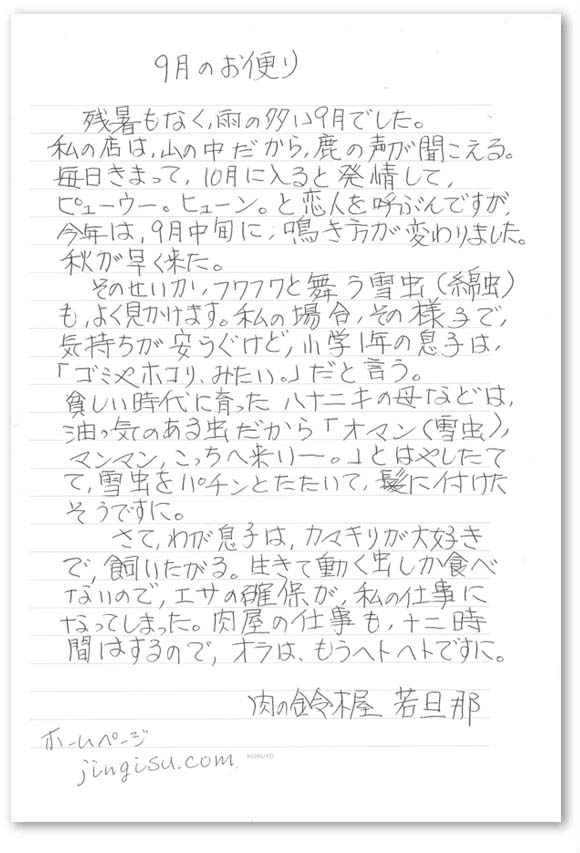 9月のお便り
残暑もなく、雨の多い9月でした。
私の店は、山の中だから、鹿の声が聞こえる。
毎日きまって、10月に入ると発情して、
ピューウー。ヒューン。と恋人を呼ぶんですが、
今年は、9月中旬に、鳴き方が変わりました。
秋が早く来た。
そのせいか、フワフワと舞う雪虫(綿虫)
も、よく見かけます。私の場合、その様子で、
気持ちが安らぐけど、小学1年の息子は、
「ゴミやホコリ、みたい。」だと言う。
貧しい時代に育ったハナニキの母などは、
油っ気のある虫だから「オマン(雪虫)、
マンマン、こっちへ来いー。」とはやしたて
て、雪虫をパチンとたたいて、髪に付けた
そうですに。
さて、わが息子は、カマキリが大好き
で、飼いたがる。生きて動く虫しか食べ
ないので、エサの確保が、私の仕事に
なってしまった。肉屋の仕事も、十二時
間はするので、オラは、もうヘトヘトですに。
肉の鈴木屋 若旦那
ホームページ
jingisu.com.
KOKUYO